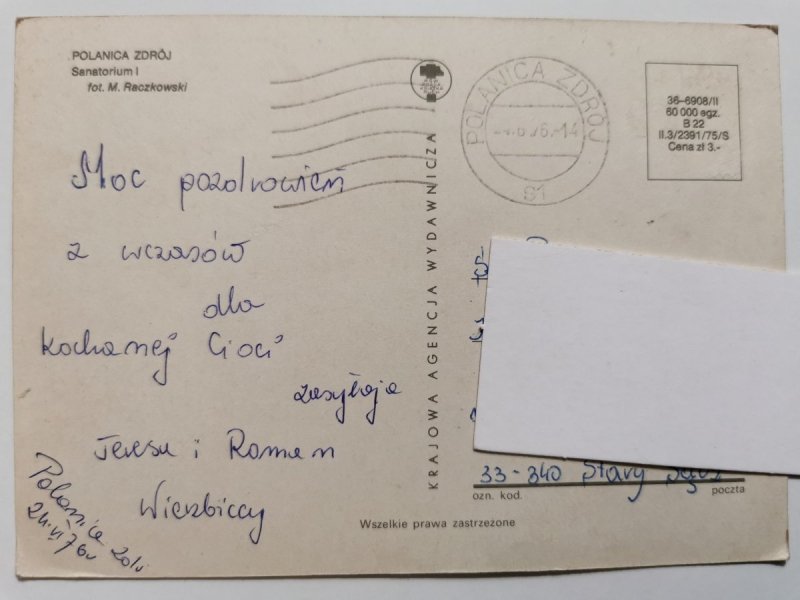 POLANICA ZDRÓJ
Sanatorium I
fot. M. Raczkowski
Moc pozdrowień
z wczasów
dla
kochanej Cioci
zasyłają
Teresa i Roman
Wierzbiccy
Polanica Zdr.
24.VI.76r.
KRAJOWA AGENCJA WYDAWNICZA
POLANICA ZDRÓJ
6.76.-14
61
36-6908/II
60 000 egz.
B 22
II.3/2391/75/S
Cena zł 3.-
33-340 Stary Sącz
ozn. kod. poczta
Wszelkie prawa zastrzeżone